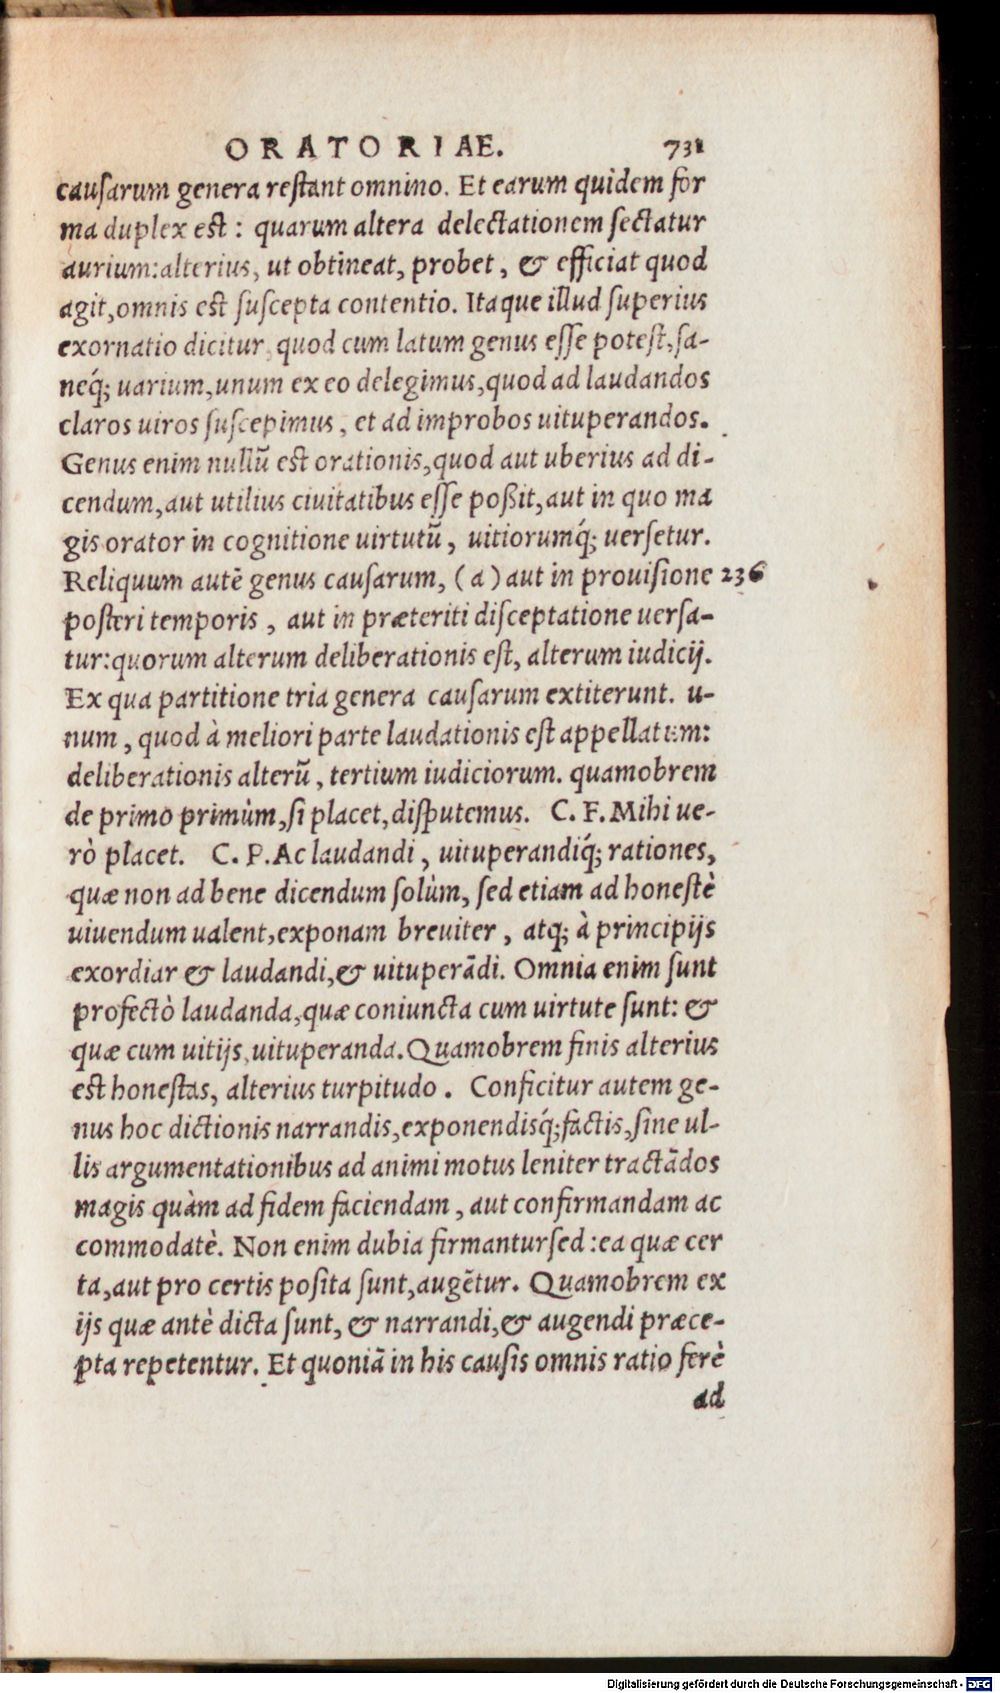 ORATORIAE. 731
causarum genera restant omnino. Et earum quidem for
ma duplex est: quarum altera delectationem sectatur
aurium: alterius, ut obtineat, probet, & efficiat quod
agit, omnis est suscepta contentio. Itaque illud superius
exornatio dicitur, quod cum latum genus esse potest, sa-
neq́; uarium, unum ex eo delegimus, quod ad laudandos
claros uiros suscepimus, et ad improbos uituperandos.
Genus enim nullū est orationis, quod aut uberius ad di-
cendum, aut utilius ciuitatibus esse poßit, aut in quo ma
gis orator in cognitione uirtutū, uitiorumq́; uersetur.
Reliquum autē genus causarum, (a) aut in prouisione 236
posteri temporis, aut in præteriti disceptatione uersa-
tur: quorum alterum deliberationis est, alterum iudicij.
Ex qua partitione tria genera causarum extiterunt. u-
num, quod à meliori parte laudationis est appellatum:
deliberationis alterū, tertium iudiciorum. quamobrem
de primo primùm, si placet, disputemus. C. F. Mihi ue-
rò placet. C. P. Ac laudandi, uituperandiq́; rationes,
quæ non ad bene dicendum solùm, sed etiam ad honestè
uiuendum ualent, exponam breuiter, atq; à principijs
exordiar & laudandi, & uituperādi. Omnia enim sunt
profectò laudanda, quæ coniuncta cum uirtute sunt: &
quæ cum uitijs, uituperanda. Quamobrem finis alterius
est honestas, alterius turpitudo. Conficitur autem ge-
nus hoc dictionis narrandis, exponendisq́; factis, sine ul-
lis argumentationibus ad animi motus leniter tractādos
magis quàm ad fidem faciendam, aut confirmandam ac
commodatè. Non enim dubia firmantur sed: ea quæ cer
ta, aut pro certis posita sunt, augētur. Quamobrem ex
ijs quæ antè dicta sunt, & narrandi, & augendi præce-
pta repetentur. Et quoniā in his causis omnis ratio ferè
ad
Digitalisierung gefördert durch die Deutsche Forschungsgemeinschaft - DFG